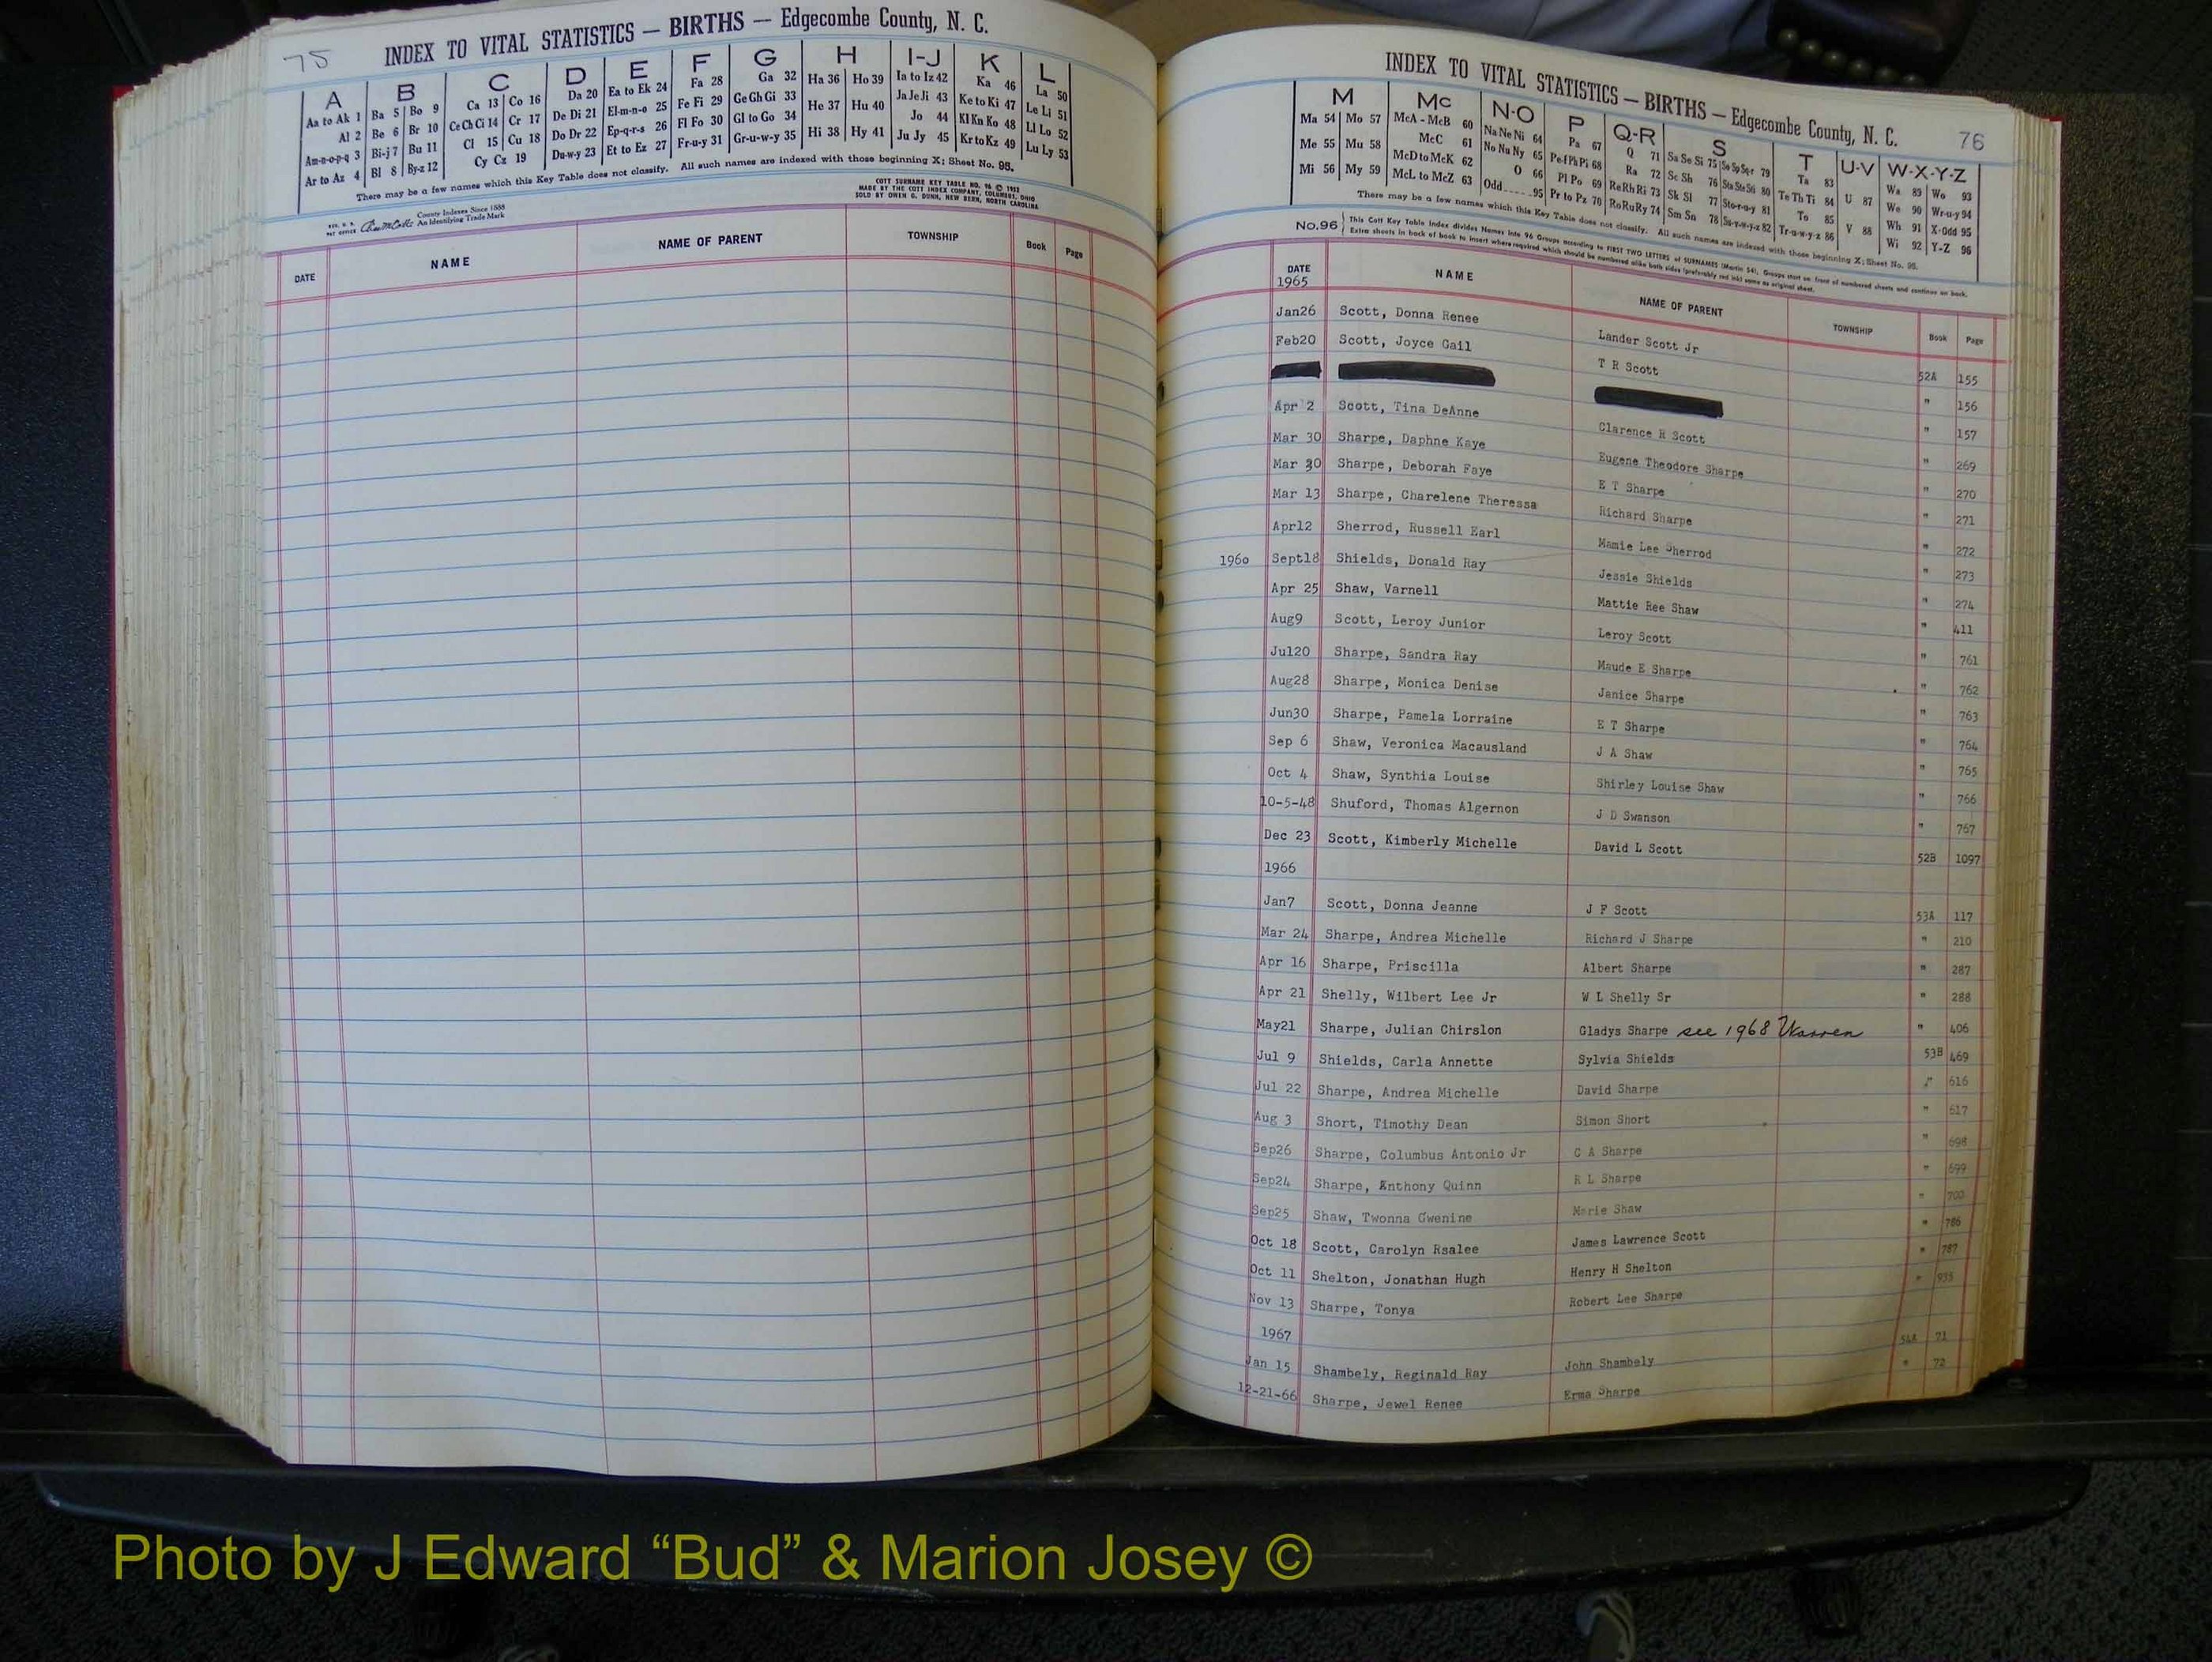 75
INDEX TO VITAL STATISTICS — BIRTHS — Edgecombe County, N. C.
A B C D E F G H I-J K L
Aa to Ak 1 Ba 5 Bo 9 Ca 13 Co 16 Da 20 Ea to Ek 24 Fa 28 Ga 32 Ha 36 Ho 39 Ia to Iz 42 Ka 46 La 50
Al 2 Be 6 Br 10 Ce Ch Ci 14 Cr 17 De Di 21 El-m-n-o 25 Fe Fi 29 Ge Gh Gi 33 He 37 Hu 40 Ja Je Ji 43 Ke to Ki 47 Le Li 51
Am-n-o-p-q 3 Bi-j 7 Bu 11 Cl 15 Cu 18 Do Dr 22 Ep-q-r-s 26 Fl Fo 30 Gl to Go 34 Hi 38 Hy 41 Jo 44 Kl Kn Ko 48 Ll Lo 52
Ar to Az 4 Bl 8 By-z 12 Cy Cz 19 Du-w-y 23 Et to Ez 27 Fr-u-y 31 Gr-u-w-y 35 Ju Jy 45 Kr to Kz 49 Lu Ly 53
There may be a few names which this Key Table does not classify. All such names are indexed with those beginning X; Sheet No. 95.
COTT SURNAME KEY TABLE NO. 96 © 1952
MADE BY THE COTT INDEX COMPANY, COLUMBUS, OHIO
SOLD BY OWEN G. DUNN, NEW BERN, NORTH CAROLINA
County Indexes Since 1888
An Identifying Trade Mark
DATE NAME NAME OF PARENT TOWNSHIP Book Page
INDEX TO VITAL STATISTICS — BIRTHS — Edgecombe County, N. C.
76
M Mc N-O P Q-R S T U-V W-X-Y-Z
Ma 54 Mo 57 McA - McB 60 Na Ne Ni 64 Pa 67 Q 71 Sa Se Si 75 So Sp Sq-r 79 Ta 83 U 87 Wa 89 Wo 93
Me 55 Mu 58 McC 61 No Nu Ny 65 Pe-f Ph Pi 68 Ra 72 Sc Sh 76 Sta Ste Sti 80 Te Th Ti 84 V 88 We 90 Wr-u-y 94
Mi 56 My 59 McD to McK 62 O 66 Pl Po 69 Re Rh Ri 73 Sk Sl 77 Sto-r-u-y 81 To 85 Wh 91 X-Odd 95
McL to McZ 63 Odd 95 Pr to Pz 70 Ro Ru Ry 74 Sm Sn 78 Su-v-w-y-z 82 Tr-u-w-y-z 86 Wi 92 Y-Z 96
There may be a few names which this Key Table does not classify. All such names are indexed with those beginning X; Sheet No. 95.
No.96 This Cott Key Table Index divides Names into 96 Groups according to FIRST TWO LETTERS of SURNAMES (Martin 54). Groups start on front of numbered sheets and continue on back.
Extra sheets in back of book to insert where required which should be numbered alike both sides (preferably red ink) same as original sheet.
DATE NAME NAME OF PARENT TOWNSHIP Book Page
1965
Jan26 Scott, Donna Renee Lander Scott Jr 52A 155
Feb20 Scott, Joyce Gail T R Scott " 156
" 157
Apr 2 Scott, Tina DeAnne Clarence R Scott " 269
Mar 30 Sharpe, Daphne Kaye Eugene Theodore Sharpe " 270
Mar 30 Sharpe, Deborah Faye E T Sharpe " 271
Mar 13 Sharpe, Charelene Theressa Richard Sharpe " 272
Apr12 Sherrod, Russell Earl Mamie Lee Sherrod " 273
1960 Sept18 Shields, Donald Ray Jessie Shields " 274
Apr 25 Shaw, Varnell Mattie Ree Shaw " 411
Aug9 Scott, Leroy Junior Leroy Scott " 761
Jul20 Sharpe, Sandra Ray Maude E Sharpe " 762
Aug28 Sharpe, Monica Denise Janice Sharpe " 763
Jun30 Sharpe, Pamela Lorraine E T Sharpe " 764
Sep 6 Shaw, Veronica Macausland J A Shaw " 765
Oct 4 Shaw, Synthia Louise Shirley Louise Shaw " 766
10-5-48 Shuford, Thomas Algernon J D Swanson " 767
Dec 23 Scott, Kimberly Michelle David L Scott 52B 1097
1966
Jan7 Scott, Donna Jeanne J F Scott 53A 117
Mar 24 Sharpe, Andrea Michelle Richard J Sharpe " 210
Apr 16 Sharpe, Priscilla Albert Sharpe " 287
Apr 21 Shelly, Wilbert Lee Jr W L Shelly Sr " 288
May21 Sharpe, Julian Chirslon Gladys Sharpe see 1968 Warren " 406
Jul 9 Shields, Carla Annette Sylvia Shields 53B 469
Jul 22 Sharpe, Andrea Michelle David Sharpe " 616
Aug 3 Short, Timothy Dean Simon Short " 617
Sep26 Sharpe, Columbus Antonio Jr C A Sharpe " 698
Sep24 Sharpe, Anthony Quinn R L Sharpe " 699
Sep25 Shaw, Twonna Gwenine Marie Shaw " 700
Oct 18 Scott, Carolyn Rsalee James Lawrence Scott " 786
Oct 11 Shelton, Jonathan Hugh Henry H Shelton " 787
Nov 13 Sharpe, Tonya Robert Lee Sharpe " 933
1967
Jan 15 Shambely, Reginald Ray John Shambely 54A 71
12-21-66 Sharpe, Jewel Renee Erma Sharpe " 72
Photo by J Edward “Bud” & Marion Josey ©